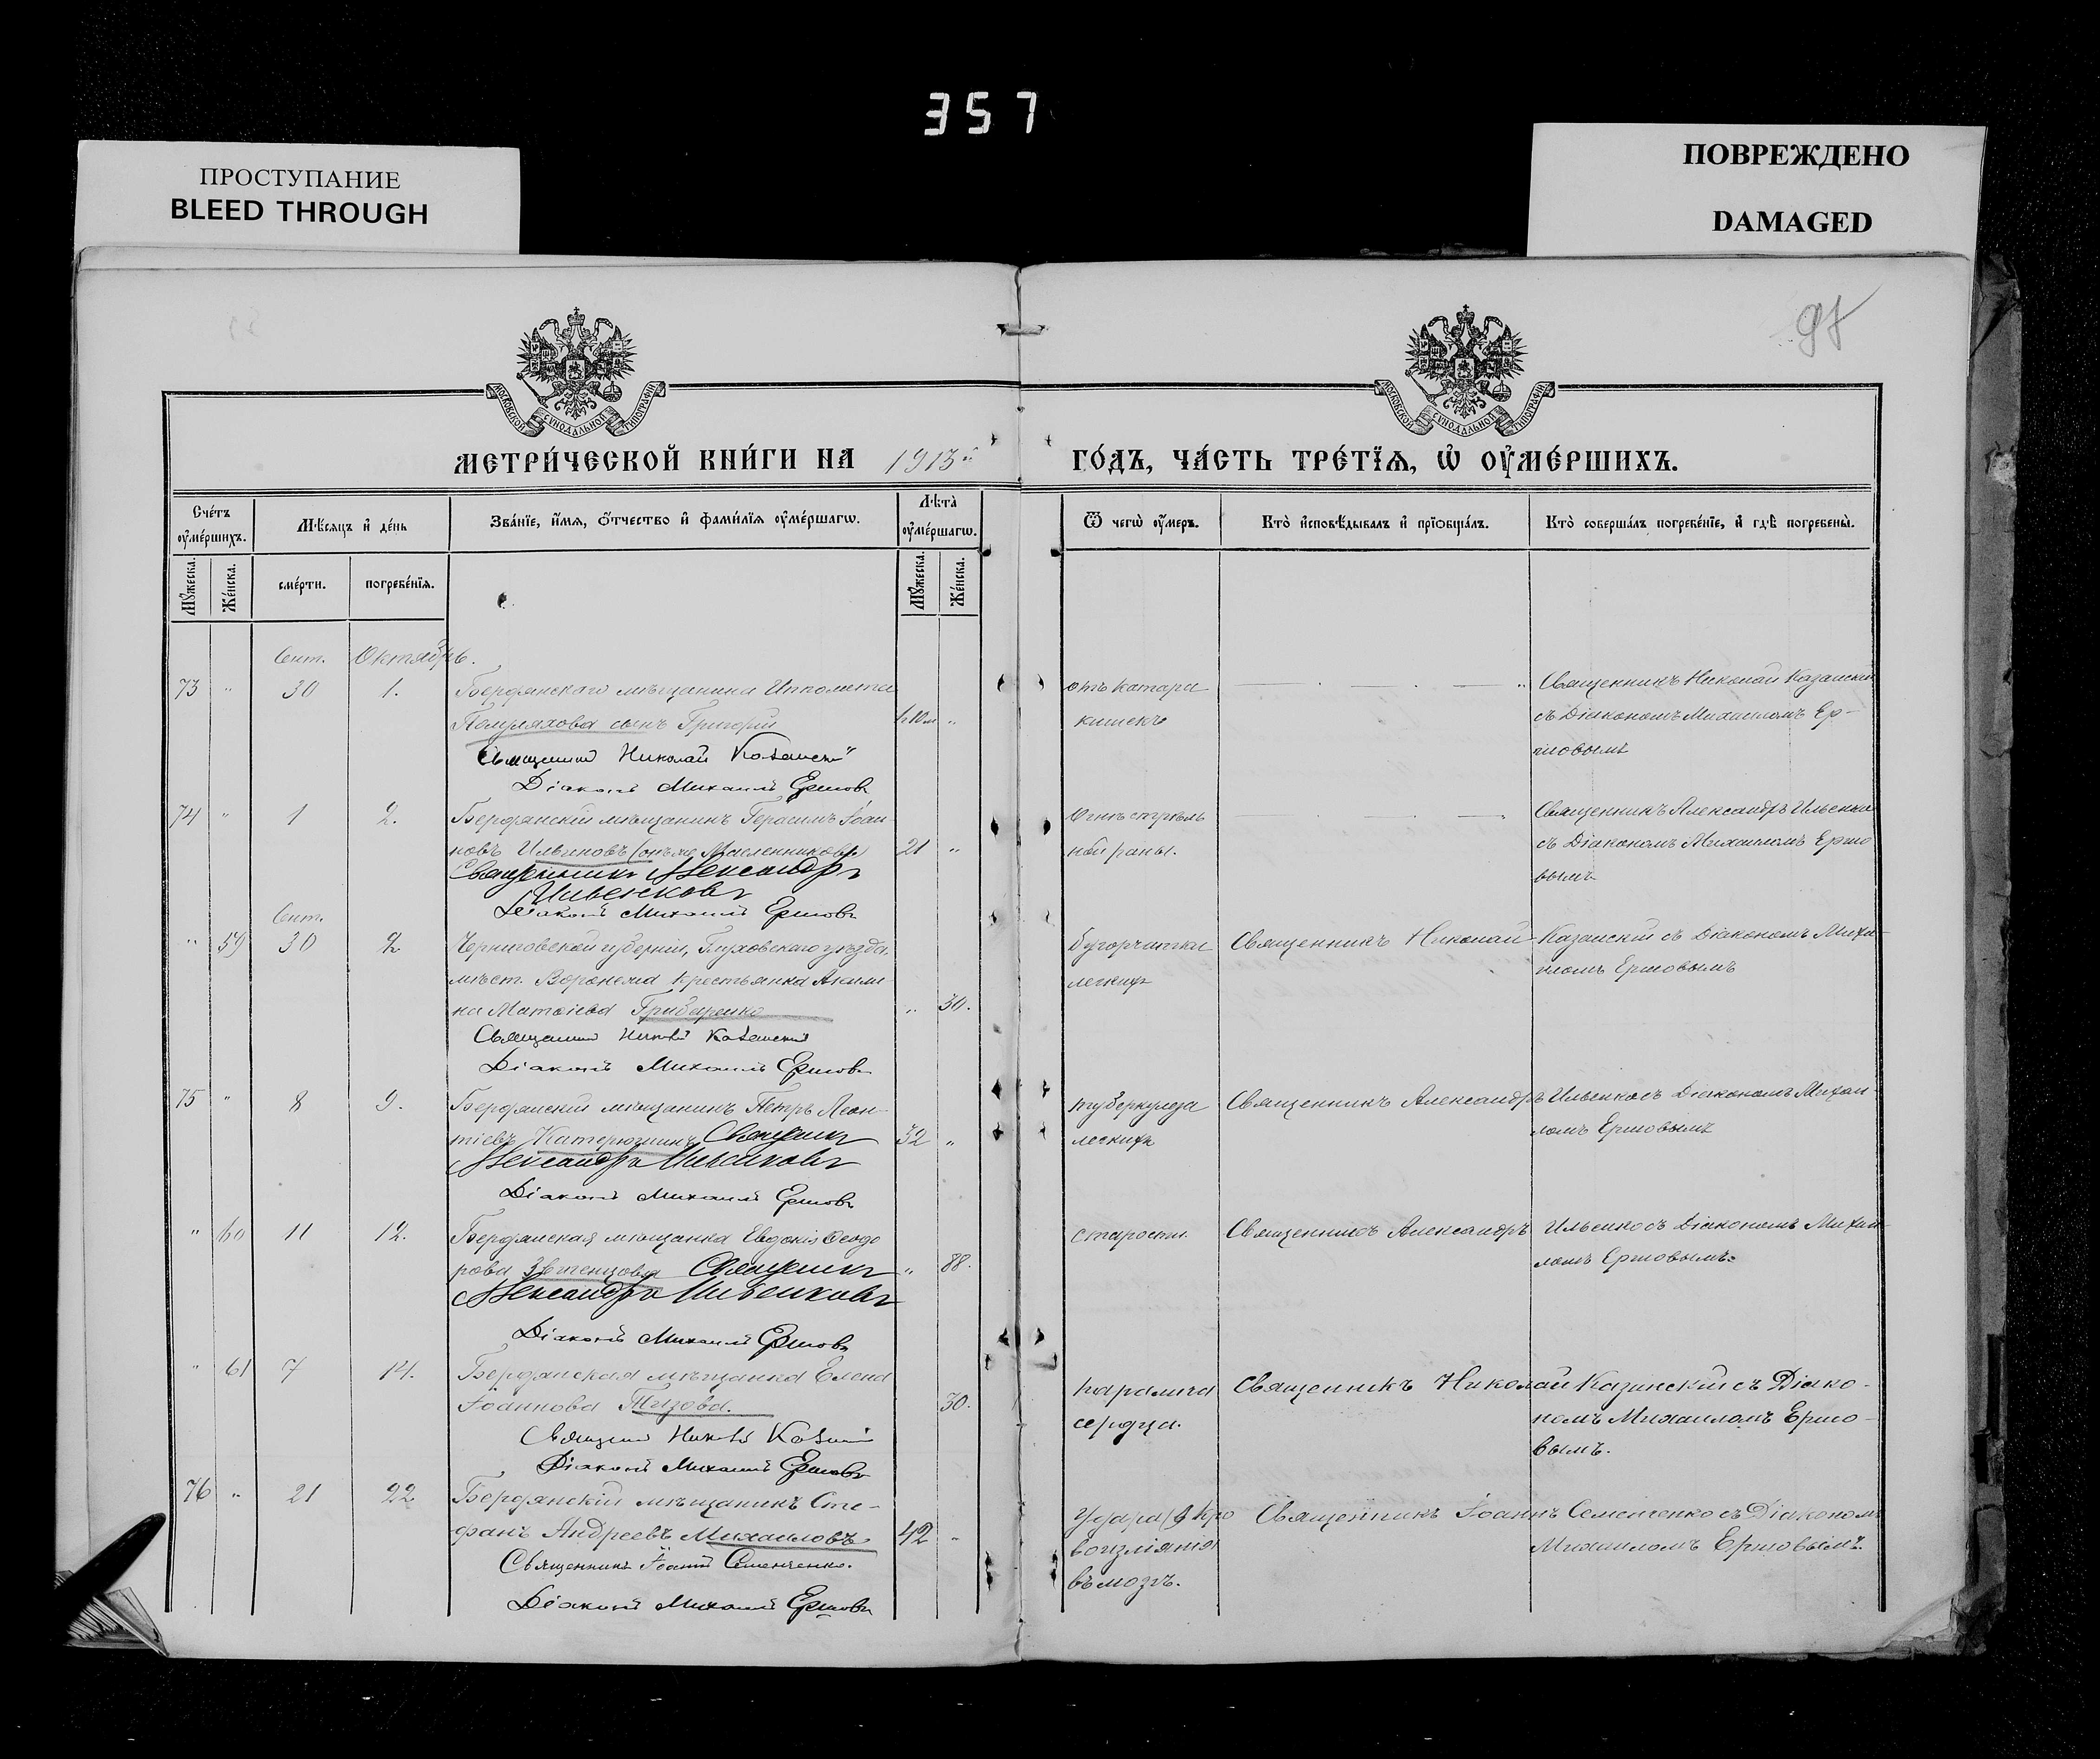 357
ПРОСТУПАНИЕ
BLEED THROUGH
ПОВРЕЖДЕНО
DAMAGED
МОСКОВСКОЙ СѴНОДАЛЬНОЙ ТИПОГРАФІИ
МОСКОВСКОЙ СѴНОДАЛЬНОЙ ТИПОГРАФІИ
МЕТРИ́ЧЕСКОЙ КНИ́ГИ НА 1913й ГО́ДЪ, ЧА́СТЬ ТРЕ́ТЇѦ, Ѡ҆ ОУ҆МЕ́РШИХЪ.
Сче́тъ оу҆ме́ршихъ.
Мѣ́сяцъ и҆ де́нь
Зва́нїе, и҆́мѧ, ѻ҆́тчество и҆ фами́лїѧ оу҆ме́ршагѡ.
Лѣта̀ оу҆ме́ршагѡ.
Ѿ чегѡ̀ оу҆́меръ.
Кто̀ и҆сповѣ́дывалъ и҆ прїѡбща́лъ.
Кто̀ соверша́лъ погребе́нїе, и҆ гдѣ̀ погребены̀.
Мꙋ́жеска.
Же́нска.
сме́рти.
погребе́нїѧ.
Мꙋ́жеска.
Же́нска.
Сент. Октябрь.
73 " 30 1. Бердянскаго мѣщанина Ипполита
сынъ Григорій
Священник Николай Казанский
Діаконъ Михаилъ Ершовъ
отъ катара
кишекъ
Священникъ Николай Казанскій
съ Діакономъ Михаиломъ Ер-
шовымъ
74 " 1 2. Бердянскій мѣщанинъ Герасимъ Іоан-
новъ Ильиновъ (онъ же Масленниковъ) 21 "
Священникъ Александръ
Ильенковъ
Діаконъ Михаилъ Ершовъ
Огнестрѣль
ной раны.
Священникъ Александръ Ильенко
съ Діакономъ Михаиломъ Ершо
вымъ
Сент.
" 59 30 2 Черниговской губерніи, Глуховскаго уѣзда,
мѣст. Воронежа крестьянка Акили
на Матѳіева Грибаренко " 30.
Священник Николай Казанский
Діаконъ Михаилъ Ершовъ
бугорчатки
легкихъ
Священникъ Николай Казанскій съ Діакономъ Михаи-
ломъ Ершовымъ
75 " 8 9. Бердянскій мѣщанинъ Петръ Леон-
тіевъ Катерюжинъ Священник 32 "
Александръ Ильенковъ
Діаконъ Михаилъ Ершовъ
туберкулеза
легкихъ
Священникъ Александръ Ильенко съ Діакономъ Михаи-
ломъ Ершовымъ
" 60 11 12. Бердянская мѣщанка Евдокія Ѳеодо
рова Священник " 88.
Александръ Ильенковъ
Діаконъ Михаилъ Ершовъ
старости.
Священникъ Александръ Ильенко съ Діакономъ Михаи-
ломъ Ершовымъ.
" 61 7 14. Бердянская мѣщанка Елена
Іоаннова Тизова. 30.
Священник Николай Казанский
Діаконъ Михаилъ Ершовъ
паралича
сердца.
Священникъ Николай Казанскій съ Діако-
номъ Михаиломъ Ершо-
вымъ.
76 " 21 22 Бердянскій мѣщанинъ Сте-
фанъ Андреевъ Михаиловъ 42 "
Священникъ Іоаннъ Семенченко.
Діаконъ Михаилъ Ершовъ
Удара кро
воизліянія
въ мозгъ.
Священникъ Іоаннъ Семенченко съ Діакономъ
Михаиломъ Ершовымъ.